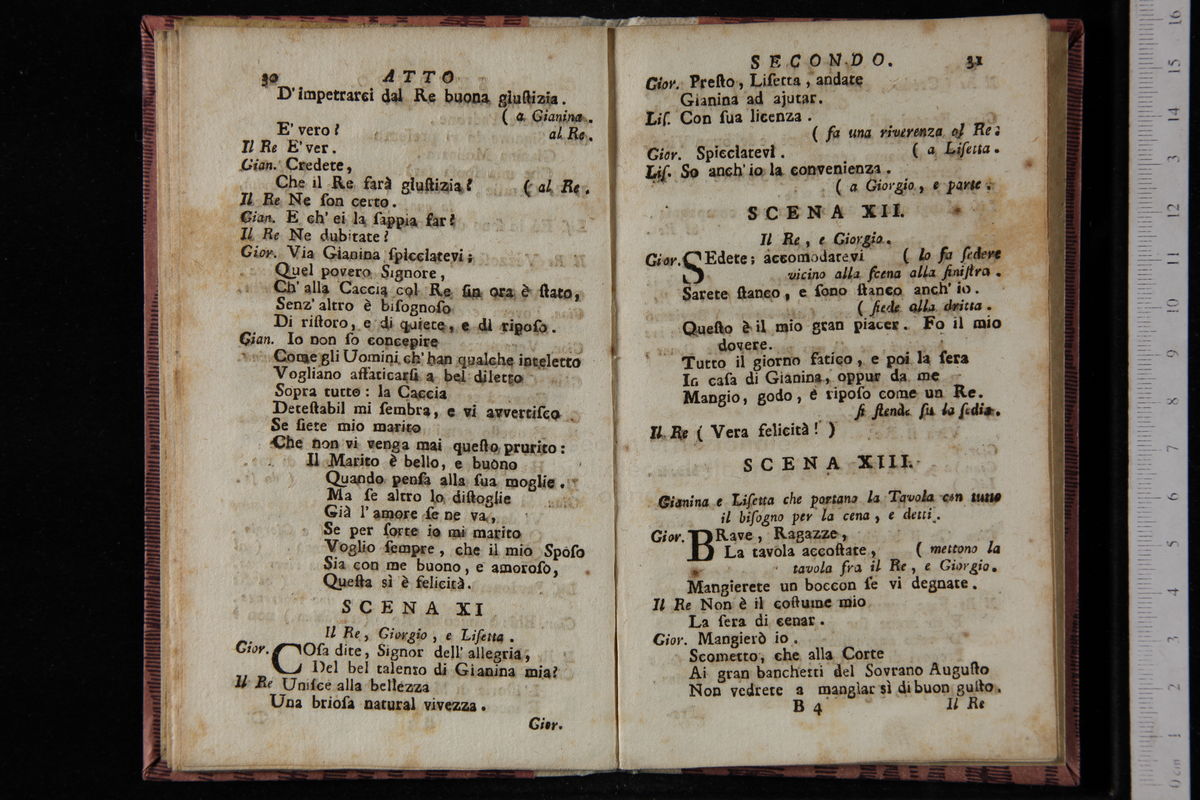 30 ATTO
D'impetrarci dal Re buona giuſtizia.
( a Gianina.
E' vero? al Re.
Il Re E' ver.
Gian. Credete,
Che il Re farà giuſtizia? ( al Re.
Il Re Ne ſon certo.
Gian. E ch' ei la ſappia far?
Il Re Ne dubitate?
Gior. Via Gianina ſpicciatevi;
Quel povero Signore,
Ch' alla Caccia col Re ſin ora è ſtato,
Senz' altro è biſognoſo
Di riſtoro, e di quiete, e di ripoſo.
Gian. Io non ſo concepire
Come gli Uomini ch' han qualche inteletto
Vogliano affaticarſi a bel diletto
Sopra tutto: la Caccia
Deteſtabil mi ſembra, e vi avvertiſco
Se ſiete mio marito
Che non vi venga mai queſto prurito:
Il Marito è bello, e buono
Quando penſa alla ſua moglie.
Ma ſe altro lo diſtoglie
Già l' amore ſe ne va,
Se per ſorte io mi marito
Voglio ſempre, che il mio Spoſo
Sia con me buono, e amoroſo,
Queſta sì è felicità.
SCENA XI
Il Re, Giorgio, e Liſetta.
Gior. COſa dite, Signor dell' allegria,
Del bel talento di Gianina mia?
Il Re Uniſce alla bellezza
Una brioſa natural vivezza.
Gior.
SECONDO. 31
Gior. Preſto, Liſetta, andate
Gianina ad ajutar.
Liſ. Con ſua licenza.
( fa una riverenza al Re:
Gior. Spicciatevi. ( a Liſetta.
Liſ. So anch' io la convenienza.
( a Giorgio, e parte.
SCENA XII.
Il Re, e Giorgio.
Gior. SEdete; accomodatevi ( lo fa ſedere
vicino alla ſcena alla ſiniſtra.
Sarete ſtanco, e ſono ſtanco anch' io.
( ſiede alla dritta.
Queſto è il mio gran piacer. Fo il mio
dovere.
Tutto il giorno fatico, e poi la ſera
In caſa di Gianina, oppur da me
Mangio, godo, e ripoſo come un Re.
ſi ſtende ſu la ſedia.
Il Re ( Vera felicità! )
SCENA XIII.
Gianina e Liſetta che portano la Tavola con tutto
il biſogno per la cena, e detti.
Gior. BRave, Ragazze,
La tavola accoſtate, ( mettono la
tavola fra il Re, e Giorgio.
Mangierete un boccon ſe vi degnate.
Il Re Non è il coſtume mio
La ſera di cenar.
Gior. Mangierò io.
Scometto, che alla Corte
Ai gran banchetti del Sovrano Auguſto
Non vedrete a mangiar sì di buon guſto.
B 4 Il Re
0 cm 1 2 3 4 5 6 7 8 9 10 11 12 13 14 15 16